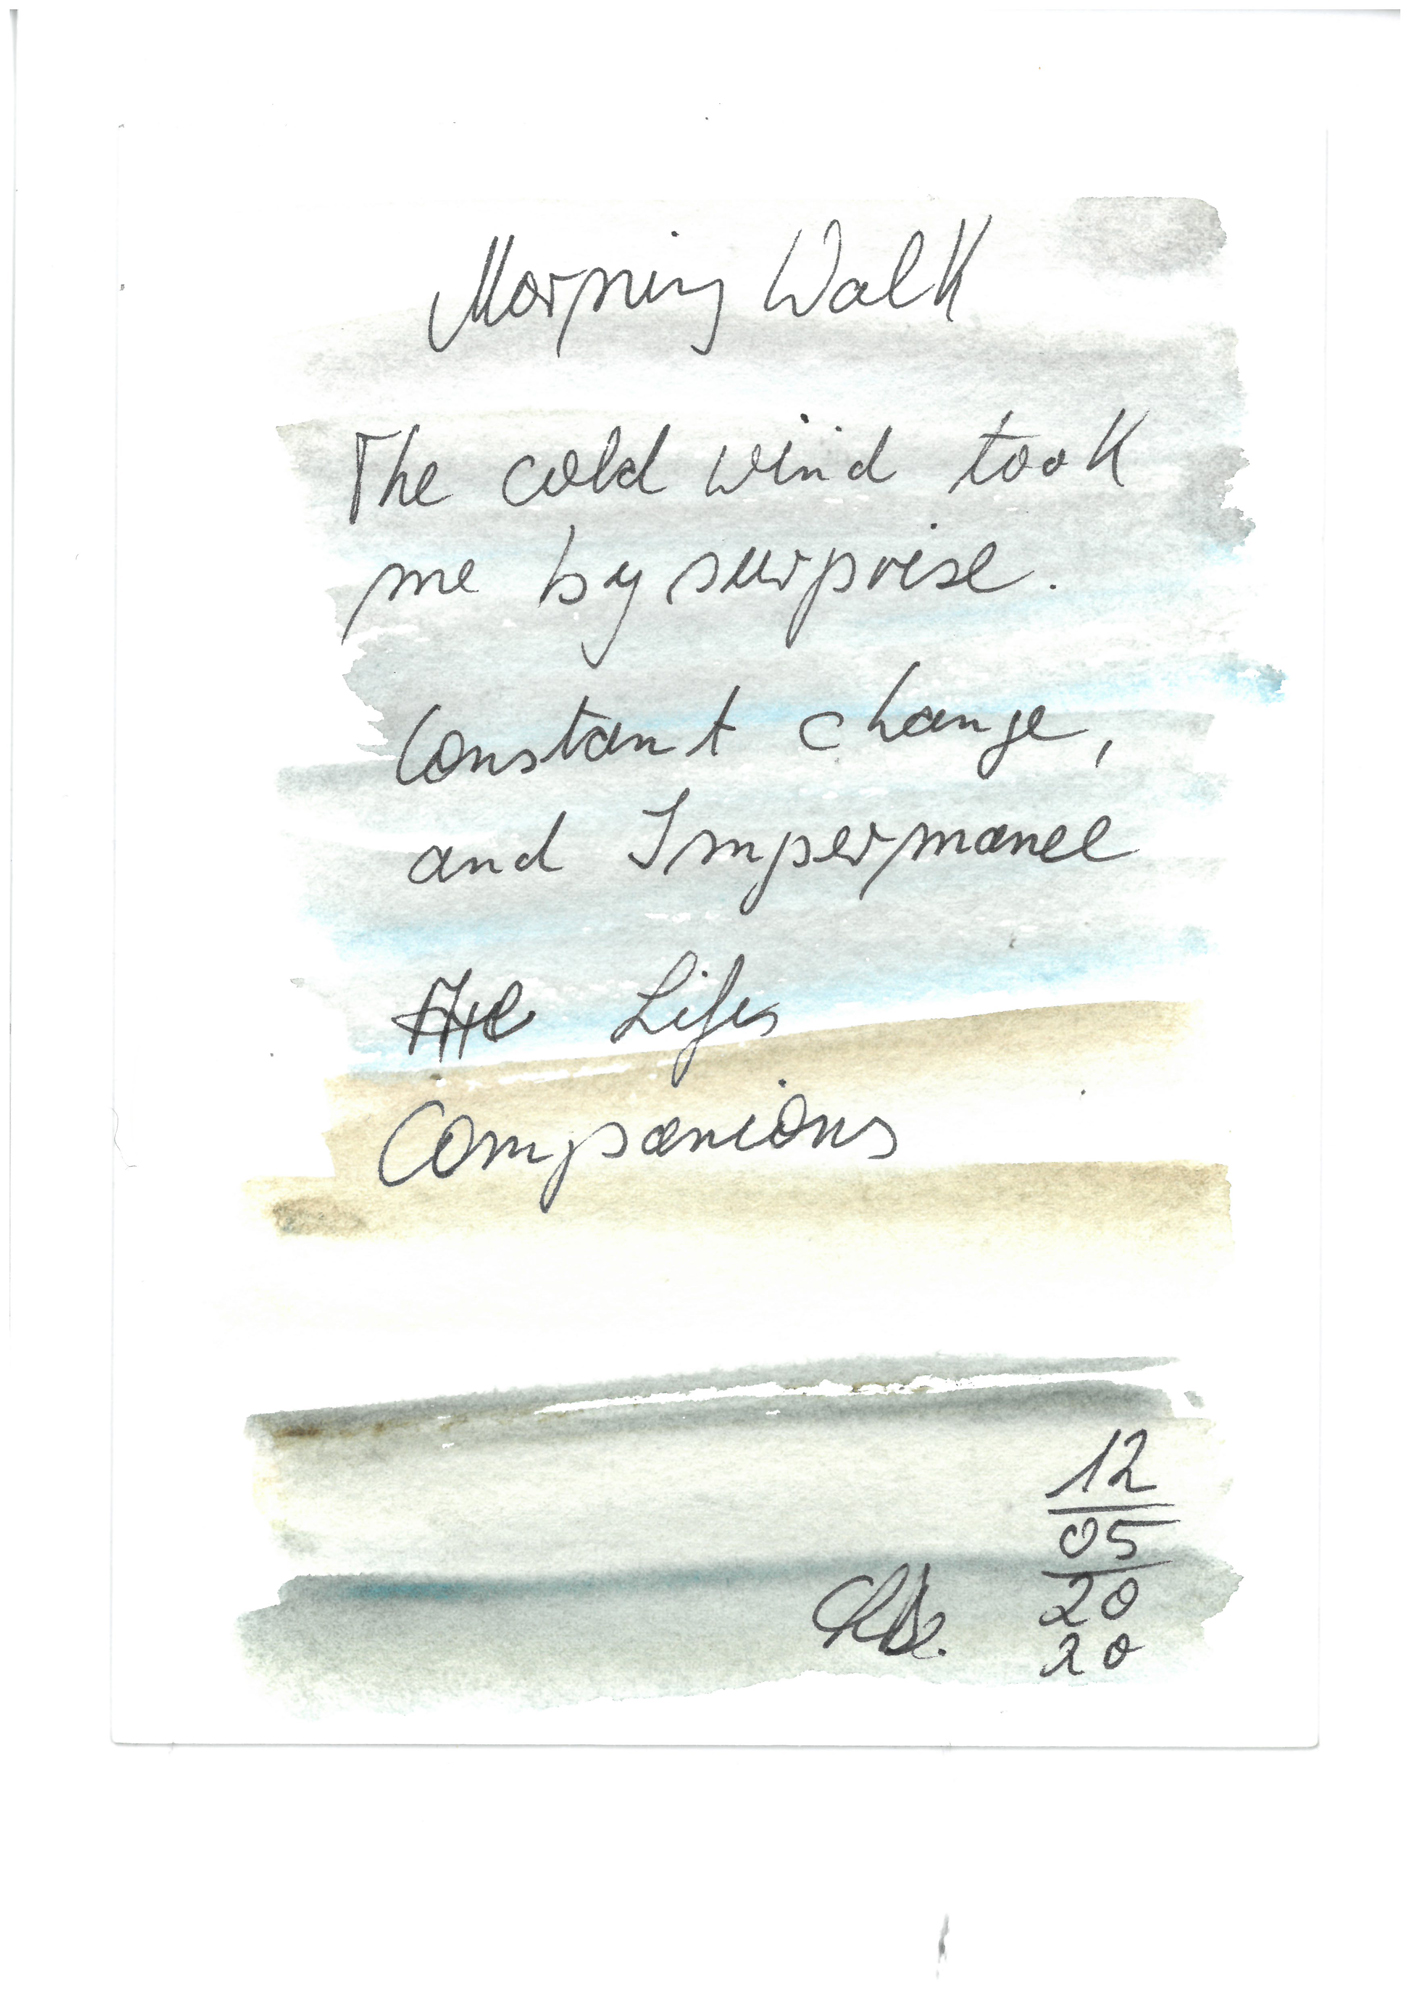 Morning Walk
The cold wind took
me by surprise.
Constant change,
and Impermance
Lifes
Companions
12
05
20
20